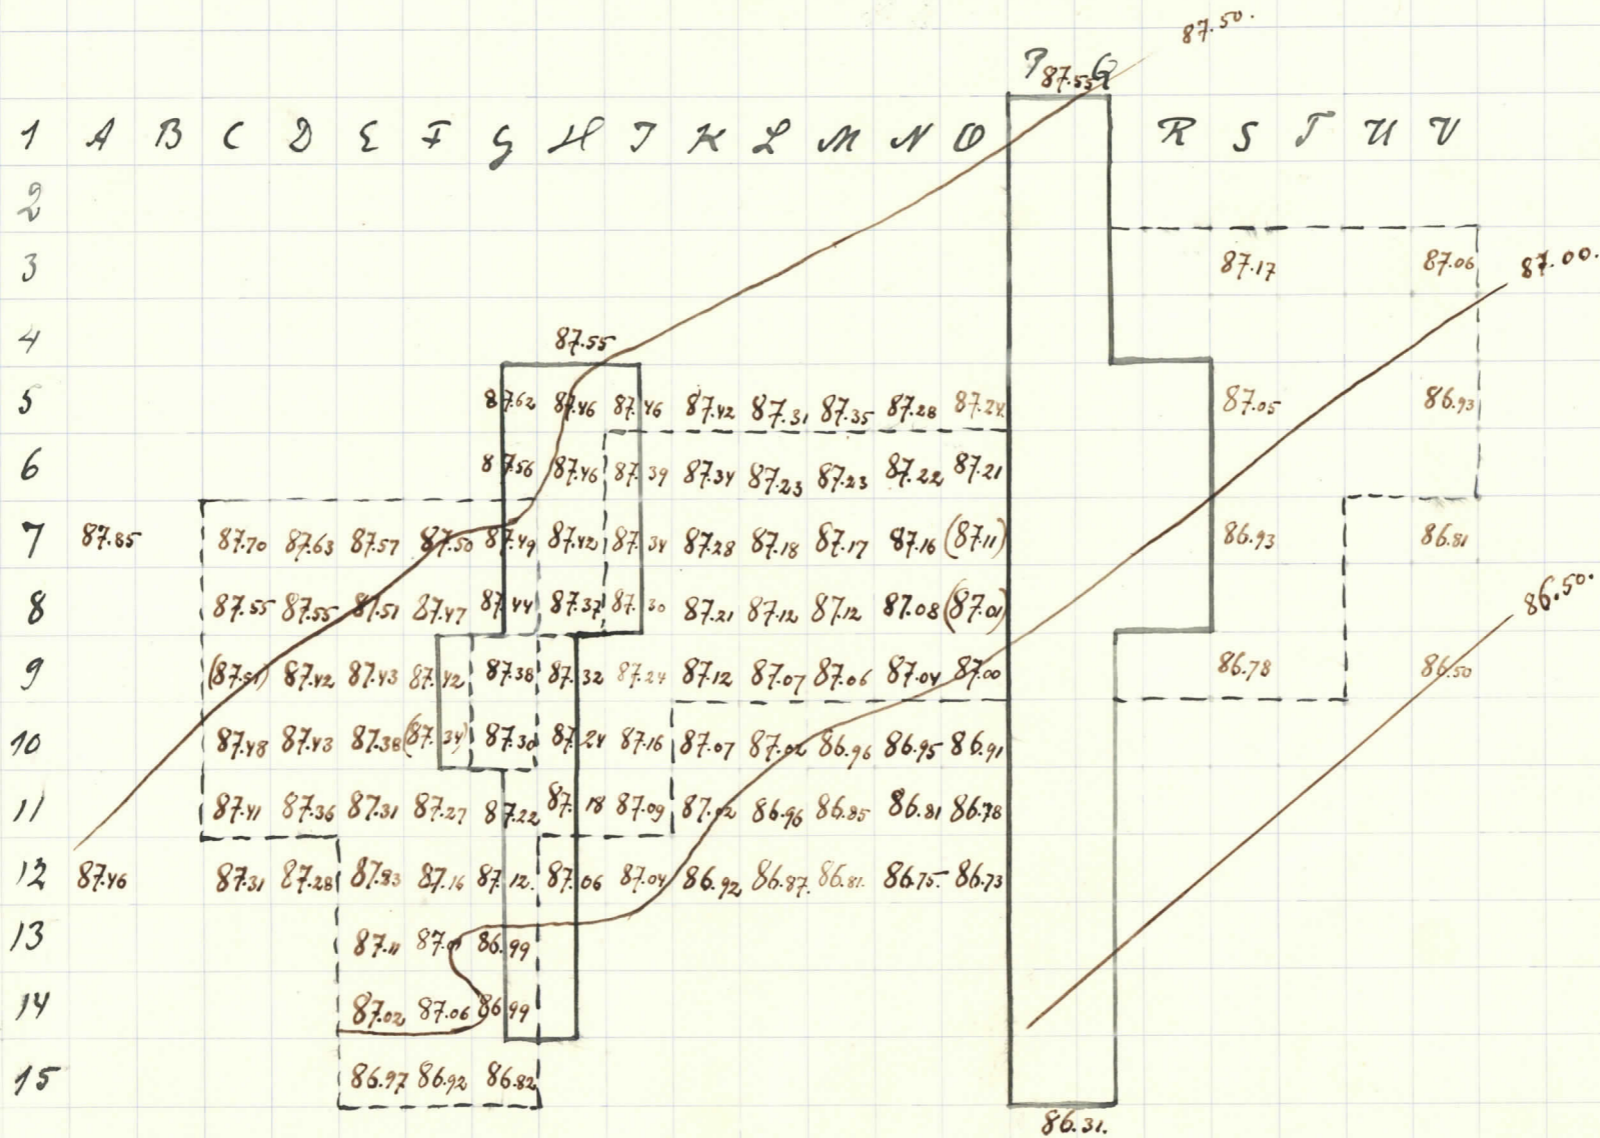 87.50.
P 87.55 Q
1 A B C D E F G H I K L M N O R S T U V
2
3 87.17 87.06 87.00.
4 87.55
5 87.62 87.46 87.46 87.42 87.31 87.35 87.28 87.24 87.05 86.93
6 87.56 87.46 87.39 87.34 87.23 87.23 87.22 87.21
7 87.85 87.70 87.63 87.57 87.50 87.49 87.42 87.34 87.28 87.18 87.17 87.16 (87.11) 86.93 86.81
86.50.
8 87.55 87.55 87.51 87.47 87.44 87.37 87.30 87.21 87.12 87.12 87.08 (87.01)
9 (87.51) 87.42 87.43 87.42 87.38 87.32 87.24 87.12 87.07 87.06 87.04 87.00 86.78 86.50
10 87.48 87.43 87.38 (87.34) 87.30 87.24 87.16 87.07 87.02 86.96 86.95 86.91
11 87.41 87.36 87.31 87.27 87.22 87.18 87.09 87.02 86.96 86.85 86.81 86.78
12 87.46 87.31 87.28 87.16 87.12. 87.06 87.04 86.92 86.87. 86.81. 86.75 86.73
13 87.11 86.99
14 87.02 87.06 86.99
15 86.97 86.92 86.82
86.31.